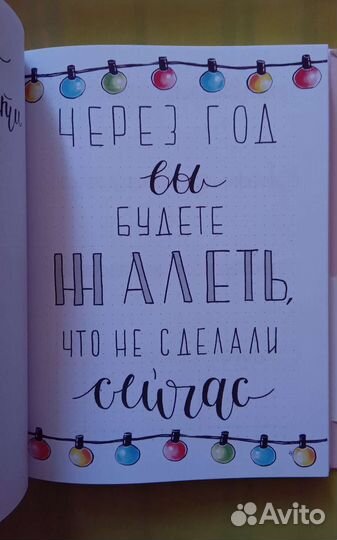 ЧЕРЕЗ ГОД
вы
БУДЕТЕ
ЖАЛЕТЬ,
ЧТО НЕ СДЕЛАЛИ
сейчас
Avito